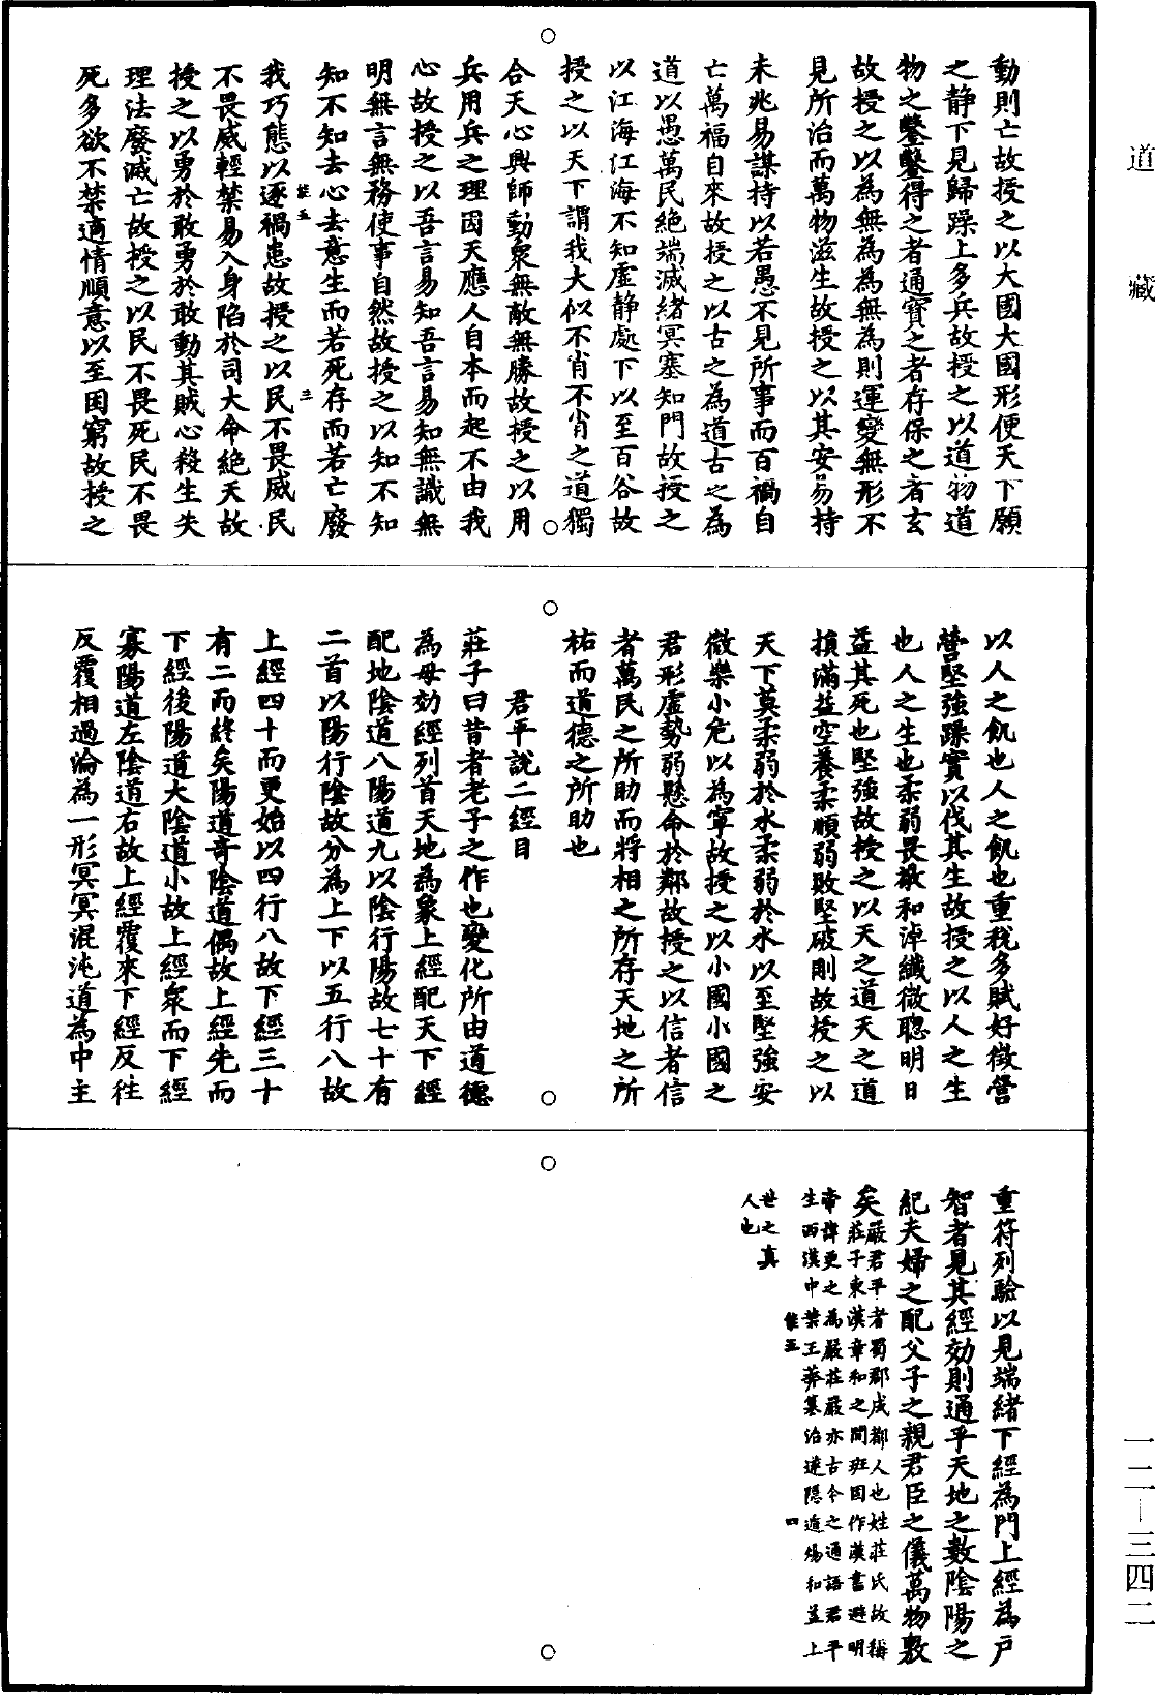 道藏
動則亡故授之以大國大國形便天下願
之靜下見歸躁上多兵故授之以道物道
物之鏨鏨得之者通寶之者存保之者玄
故授之以為無為為無為則運變無形不
見所治而萬物滋生故授之以其安易持
未兆易謀持以若愚不見所事而百禍自
亡萬福自來故授之以古之為道古之為
道以愚萬民絕端滅緒冥塞知門故授之
以江海江海不知虛靜處下以至百谷故
授之以天下謂我大似不肖不肖之道獨
合天心興師動衆無敵無勝故授之以用
兵用兵之理因天應人自本而起不由我
心故授之以吾言易知吾言易知無識無
明無言無務使事自然故授之以知不知
知不知去心去意生而若死存而若亡廢
我巧態以逐禍患故授之以民不畏威民
不畏威輕禁易入身陷於司大命絕天故
授之以勇於敢勇於敢動其賊心殺生失
理法廢滅亡故授之以民不畏死民不畏
死多欲不禁適情順意以至困窮故授之
以人之飢也人之飢也重稅多賦好徵營
營堅強躁實以伐其生故授之以人之生
也人之生也柔弱畏敬和淖纖微聰明日
益其死也堅強故授之以天之道天之道
損滿益空養柔順弱敗堅破剛故授之以
天下莫柔弱於水柔弱於水以至堅強安
微樂小危以為寧故授之以小國小國之
君形虛勢弱懸命於鄰故授之以信者信
者萬民之所助而將相之所存天地之所
祐而道德之所助也
君平說二經目
莊子曰昔者老子之作也變化所由道德
為母効經列首天地為象上經配天下經
配地陰道八陽道九以陰行陽故七十有
二首以陽行陰故分為上下以五行八故
上經四十而更始以四行八故下經三十
有二而終矣陽道奇陰道偶故上經先而
下經後陽道大陰道小故上經衆而下經
寡陽道左陰道右故上經覆來下經反往
反覆相過淪為一形冥冥混沌道為中主
重符列驗以見端緒下經為門上經為戶
智者見其經効則通乎天地之數陰陽之
紀夫婦之配父子之親君臣之儀萬物敷
矣嚴君平者蜀郡成都人也姓莊氏故稱
莊子東漢章和之間班固作漢書避明
帝諱更之為嚴莊嚴亦古今之通語君平
生西漢中葉王莽篡治遂隱遁煬和蓋上
世之真
人也
一二—三四二